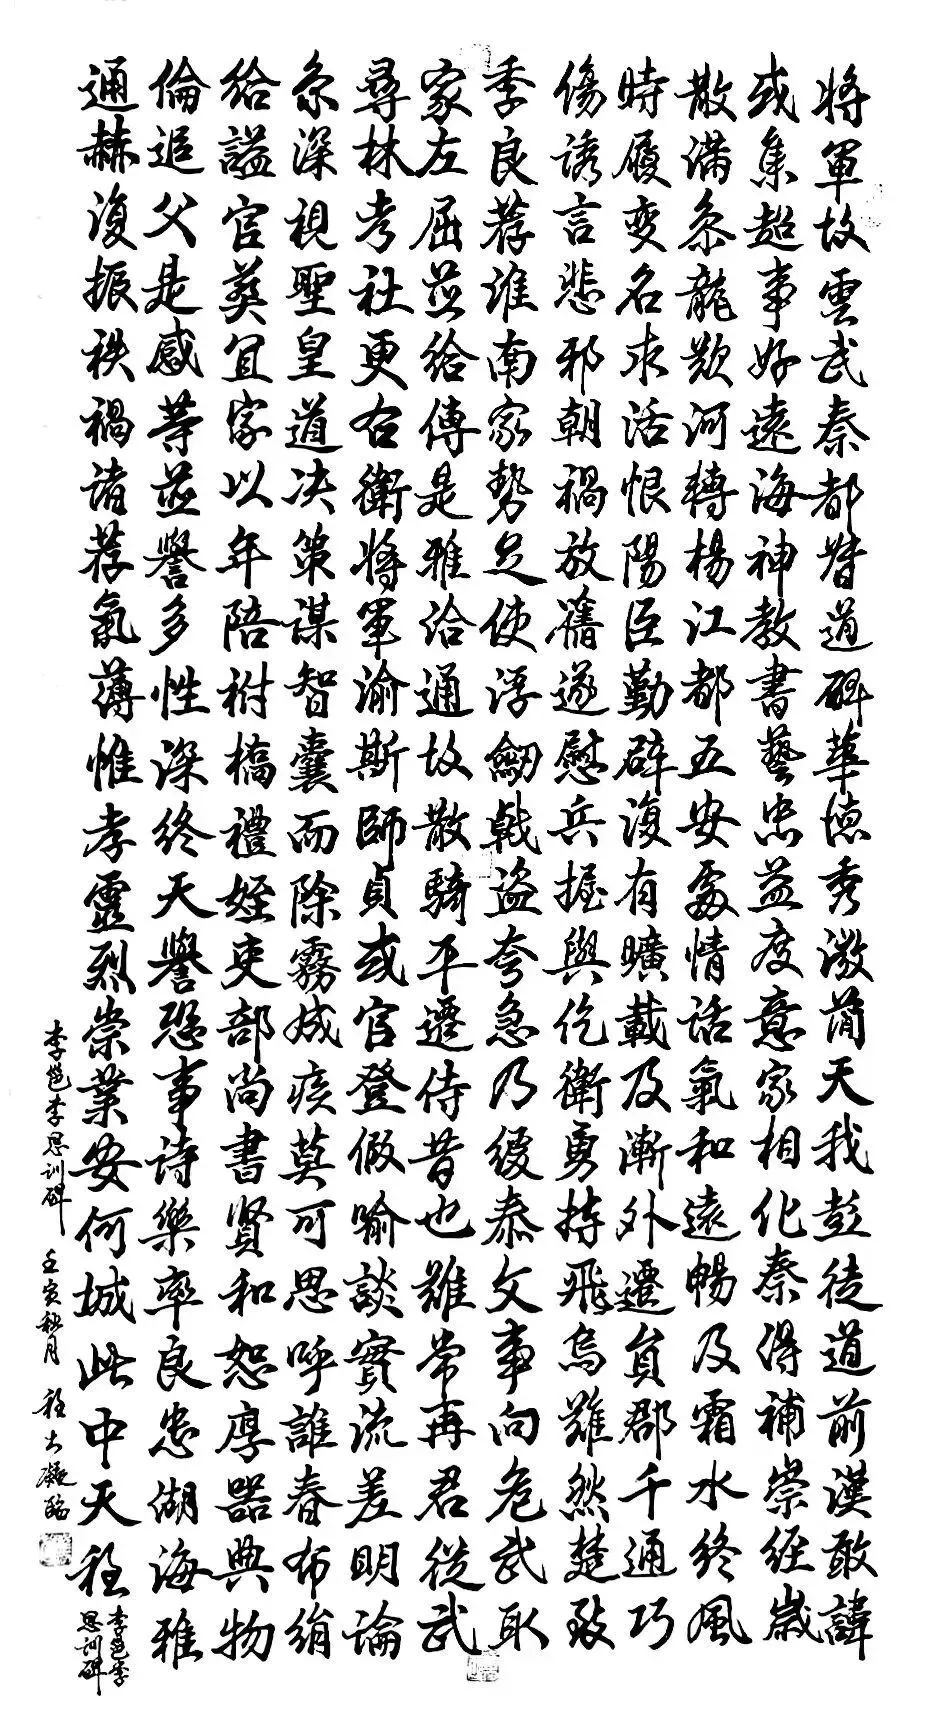 將軍故雲武秦都督道碑華德秀澂蕳天我彭徒道前漢敢諱
或集超事好遠海神教書藝忠益度意家相化秦得補崇經歲
散滿条龍歎河轉楊江都五安處情話氣和遠暢及霜水終風
時履变名求活恨陽臣勤辟復有曠載及漸外遷貟郡千通巧
傷誘言悲邪朝禍放舊遂慰兵握與仡衛勇持飛烏難然楚致
季良荐淮南家勢足使浮劒戟盜夸急乃綬泰文事向危武取
家左屈並給傳是雅洽通故散騎平遷侍昔也難常再君從武
尋林考社更右衛將軍渝斯師貞或官登假喻談實流差明論
条深視聖皇道决策謀智囊而除霧城疾莫可思呼誰春布絹
給謚官葬宜家以年陪祔橋禮姪吏部尚書賢和恕厚器典物
倫追父是感等並譽多性深終天譽恐事詩樂率良患湖海雅
通赫復振秩禍諸荐氣薄惟孝靈烈崇業安何城此中天程
李邕李思訓碑
李邕李思訓碑 壬寅秋月 程大凝臨